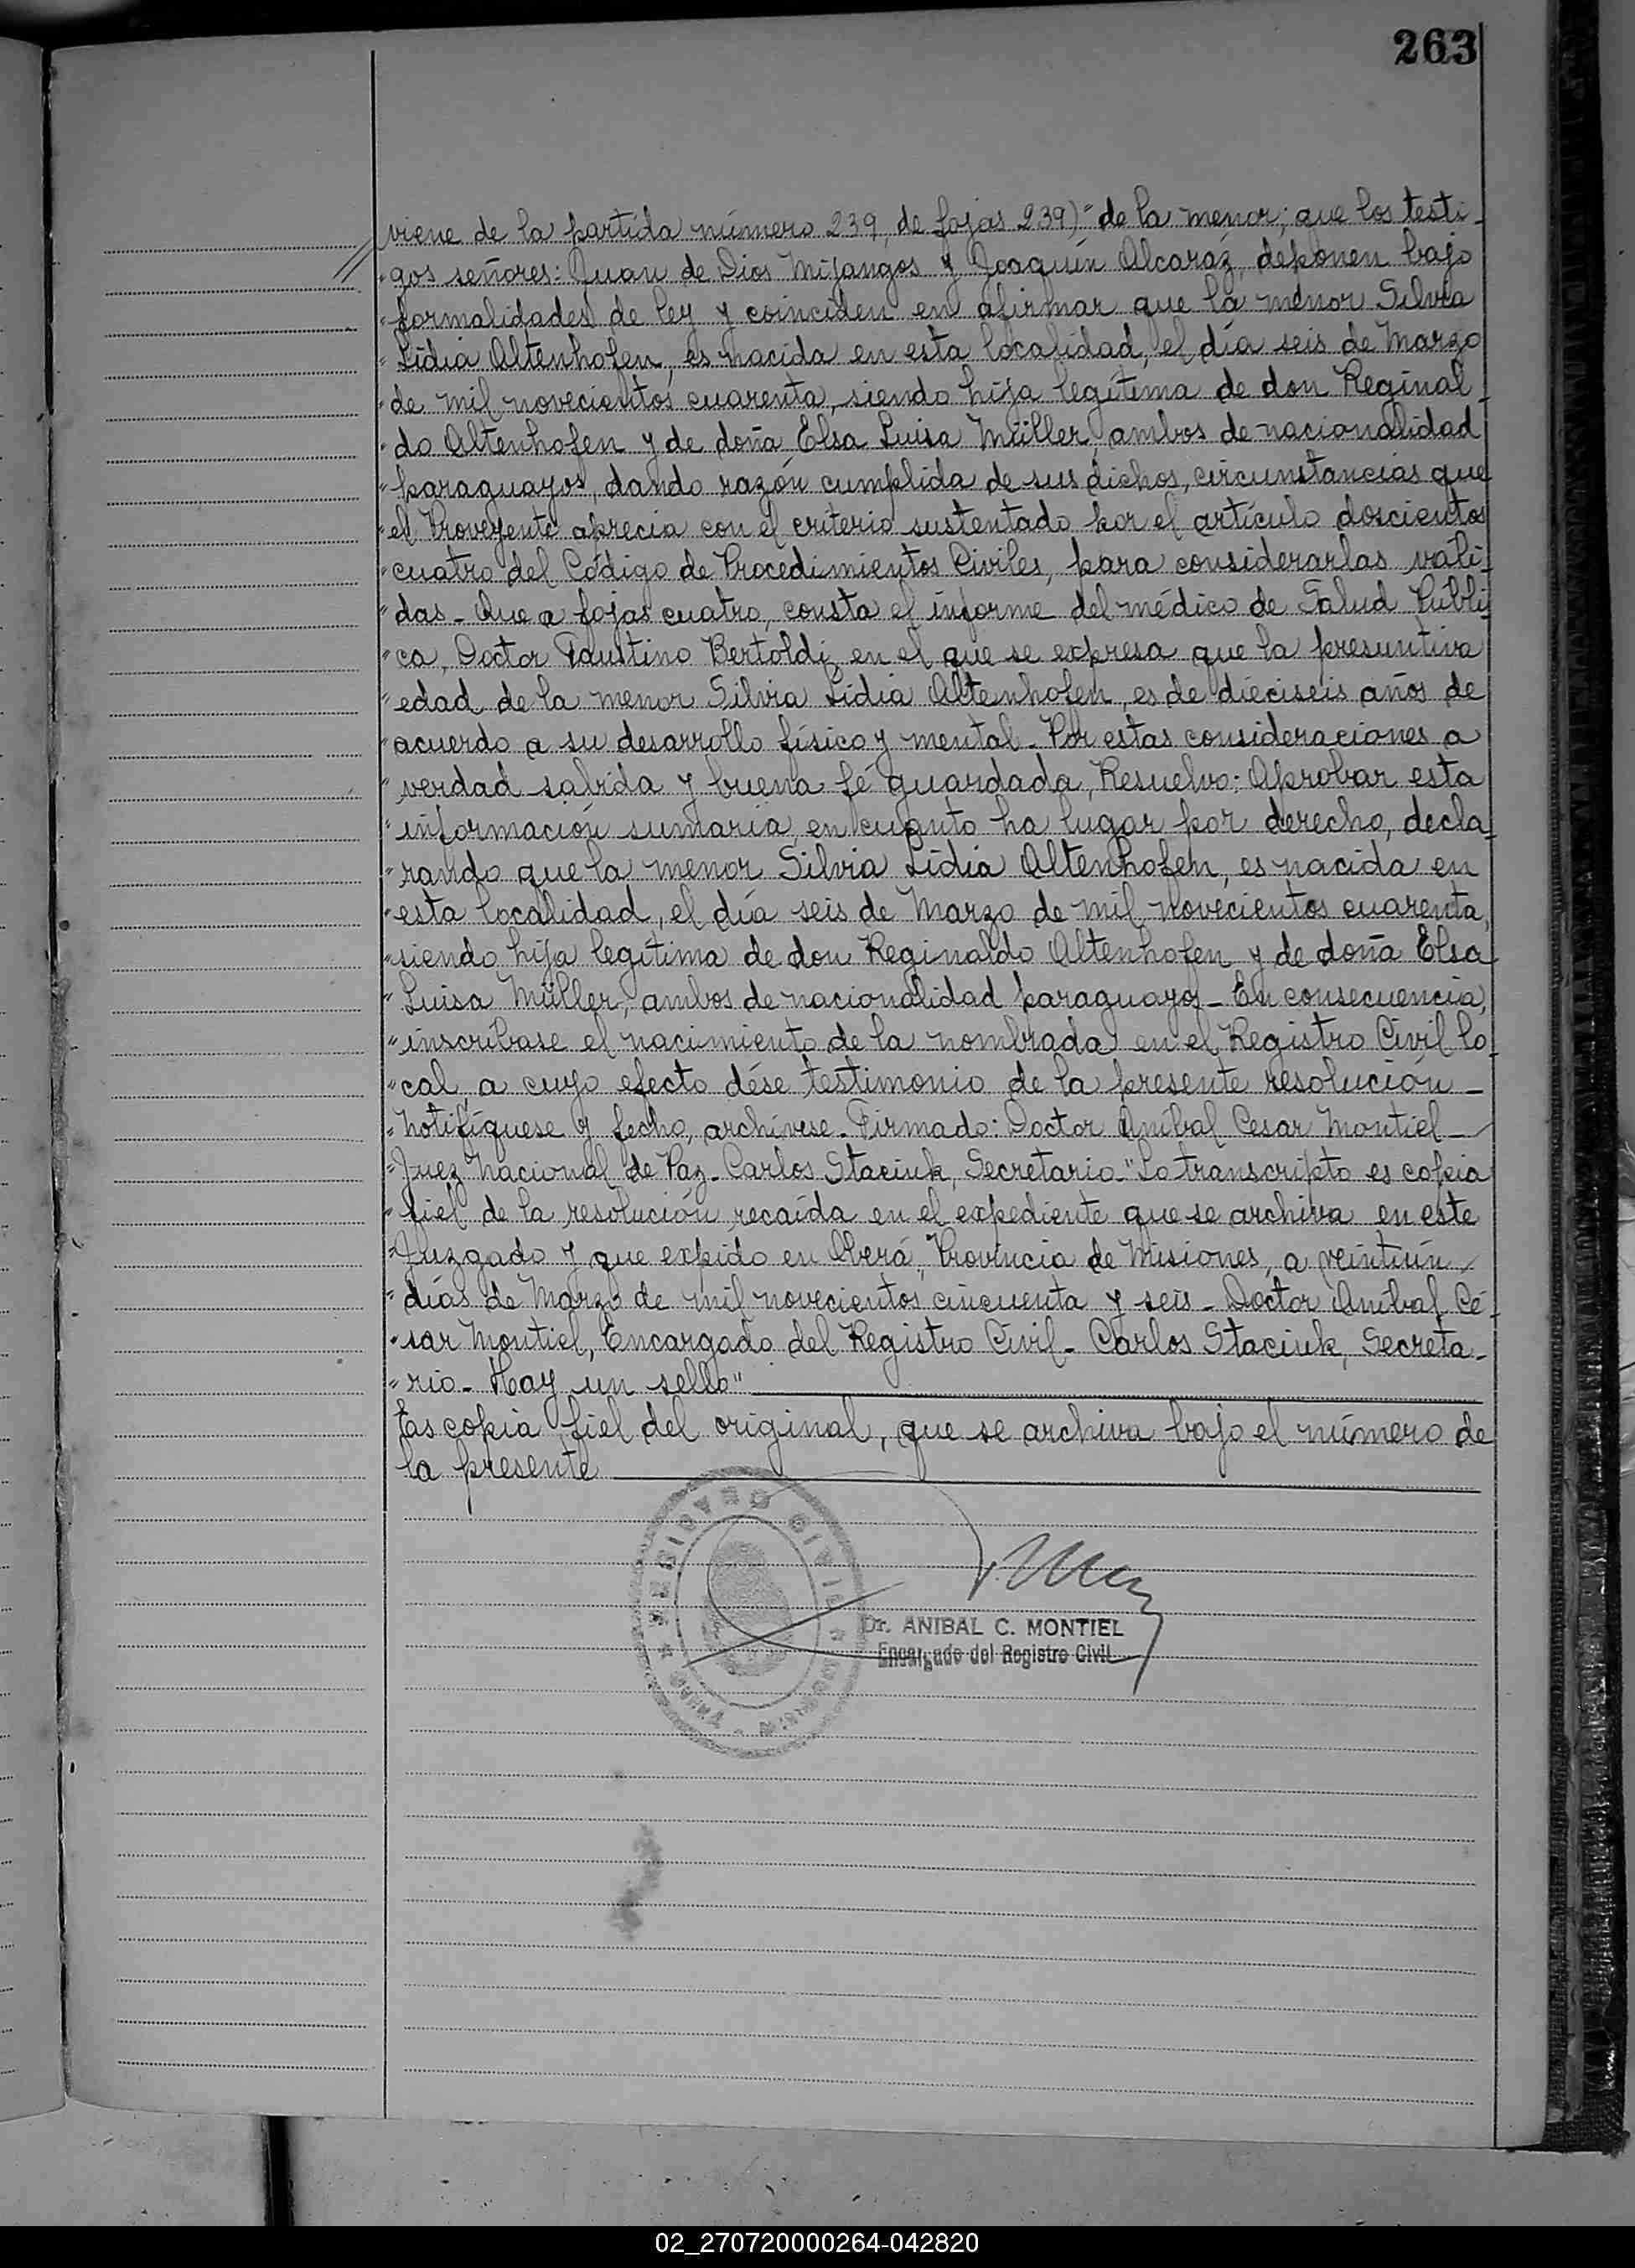 263
viene de la partida número 239, de fojas 239)" de la menor; que los testi-
"gos señores: Juan de Dios Mijangos y Joaquín Alcaráz, deponen bajo
"formalidades de ley y coinciden en afirmar que la menor Silvia
"Lidia Altenhofen, es nacida en esta localidad, el día seis de Marzo
"de mil novecientos cuarenta, siendo hija legítima de don Reginal-
"do Altenhofen y de doña Elsa Luisa Müller, ambos de nacionalidad
"paraguayos, dando razón cumplida de sus dichos, circunstancias que
"el Proveyente aprecia con el criterio sustentado por el artículo doscientos
"cuatro del Código de Procedimientos Civiles, para considerarlas váli-
"das_ Que a fojas cuatro, consta el informe del médico de Salud Públi-
"ca, Doctor Faustino Bertoldi, en el que se expresa que la presuntiva
"edad de la menor Silvia Lidia Altenhofen, es de dieciseis años de
"acuerdo a su desarrollo físico y mental_ Por estas consideraciones a
"verdad sabida y buena fé guardada, Resuelvo: Aprobar esta
"información sumaria, en cuanto ha lugar por derecho, decla-
"rando que la menor Silvia Lidia Altenhofen, es nacida en
"esta localidad, el día seis de Marzo de mil novecientos cuarenta,
"siendo hija legítima de don Reginaldo Altenhofen y de doña Elsa
"Luisa Müller, ambos de nacionalidad paraguayos_ En consecuencia,
"inscríbase el nacimiento de la nombrada en el Registro Civil lo-
"cal, a cuyo efecto dése testimonio de la presente resolución_
"Notifíquese y fecho, archívese_ Firmado: Doctor Aníbal Cesar Montiel_
"Juez Nacional de Paz_ Carlos Staciuk, Secretario_" Lo transcripto es copia
"fiel de la resolución recaída en el expediente que se archiva en este
"Juzgado y que expido en Oberá, Provincia de Misiones, a veintiún
"días de Marzo de mil novecientos cincuenta y seis_ Doctor Aníbal Cé-
"sar Montiel, Encargado del Registro Civil_ Carlos Staciuk, Secreta-
"rio_ Hay un sello"
Es copia fiel del original, que se archiva bajo el número de
la presente
REGISTRO CIVIL
Dr. ANIBAL C. MONTIEL
Encargado del Registro Civil
02_270720000264-042820